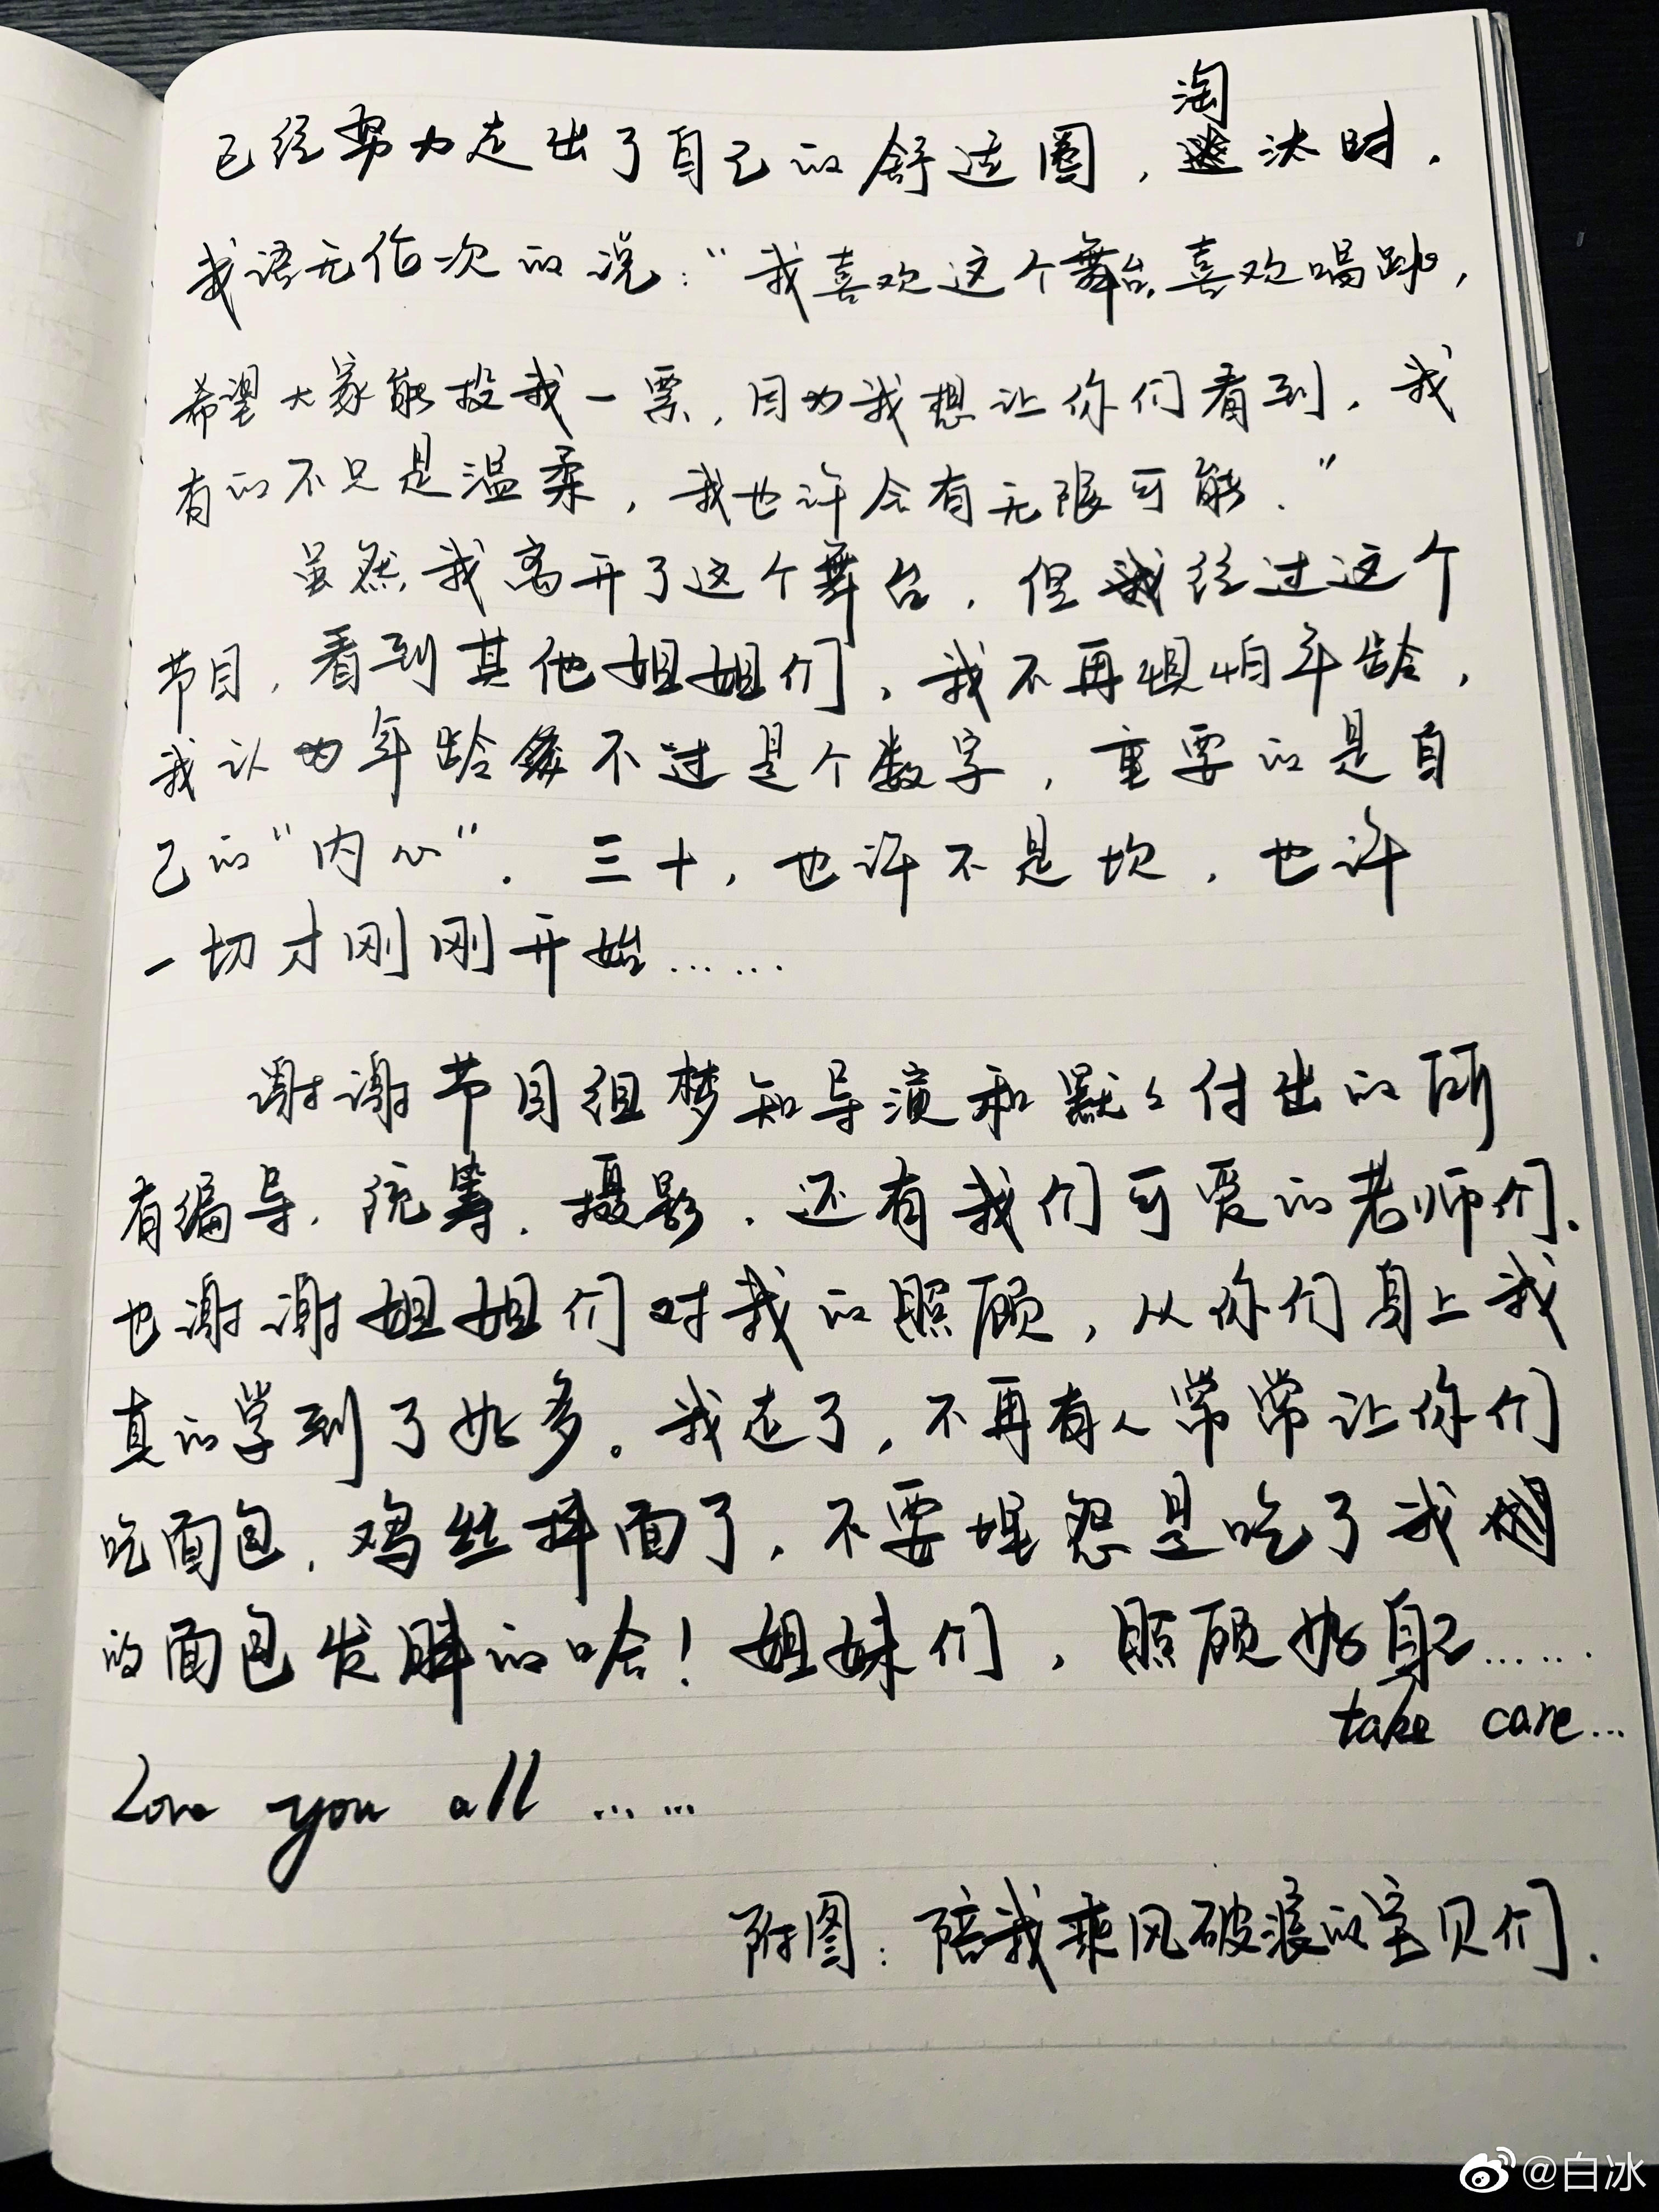 淘
已经努力走出了自己的舒适圈，汰时，
我语无伦次的说：“我喜欢这个舞台，喜欢唱跳，
希望大家能投我一票，因为我想让你们看到，我
有的不只是温柔，我也许会有无限可能．”
虽然，我离开了这个舞台，但我经过这个
节目，看到其他姐姐们，我不再惧怕年龄，
我认为年龄不过是个数字，重要的是自
己的“内心”．三十，也许不是坎，也许
一切才刚刚开始……
谢谢节目组梦知导演和默々付出的所
有编导，统筹，摄影，还有我们可爱的老师们．
也谢谢姐姐们对我的照顾，从你们身上我
真的学到了好多。我走了，不再有人常常让你们
吃面包，鸡丝拌面了，不要埋怨是吃了我
的面包发胖的哈！姐妹们，照顾好自己……
take care...
Love you all ……
附图：陪我乘风破浪的宝贝们．
@白冰